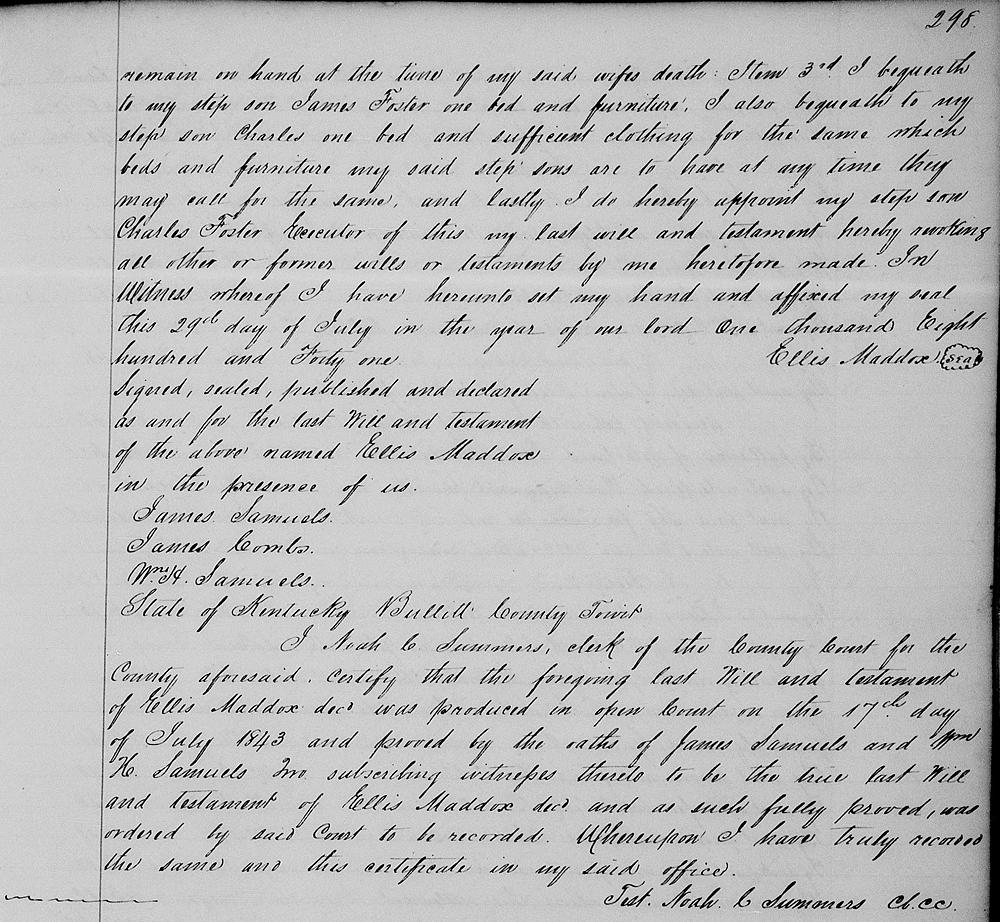 298
remain on hand at the time of my said wifes death: Item 3rd I bequeath
to my step son James Foster one bed and furniture, I also bequeath to my
step son Charles one bed and sufficient clothing for the same which
beds and furniture my said step sons are to have at any time they
may call for the same, and lastly I do hereby appoint my step son
Charles Foster Executor of this my last will and testament hereby revoking
all other or former wills or testaments by me heretofore made. In
Witness whereof I have hereunto set my hand and affixed my seal
this 29th day of July in the year of our lord One thousand Eight
hundred and Forty one. Ellis Maddox Seal
Signed, sealed, published and declared
as and for the last Will and testament
of the above named Ellis Maddox
in the presence of us.
James Samuels.
James Combs.
Wm. H. Samuels.
State of Kentucky Bullitt County Towit
I Noah C Summers, clerk of the County Court for the
County aforesaid, certify that the foregoing last Will and testament
of Ellis Maddox decd was produced in open Court on the 17th day
of July 1843 and proved by the oaths of James Samuels and Wm
H. Samuels Two subscribing witnesses thereto to be the true last Will
and testament of Ellis Maddox decd and as such fully proved, was
ordered by said Court to be recorded. Whereupon I have truly recorded
the same and this certificate in my said office.
Test. Noah. C Summers Cl.CC.